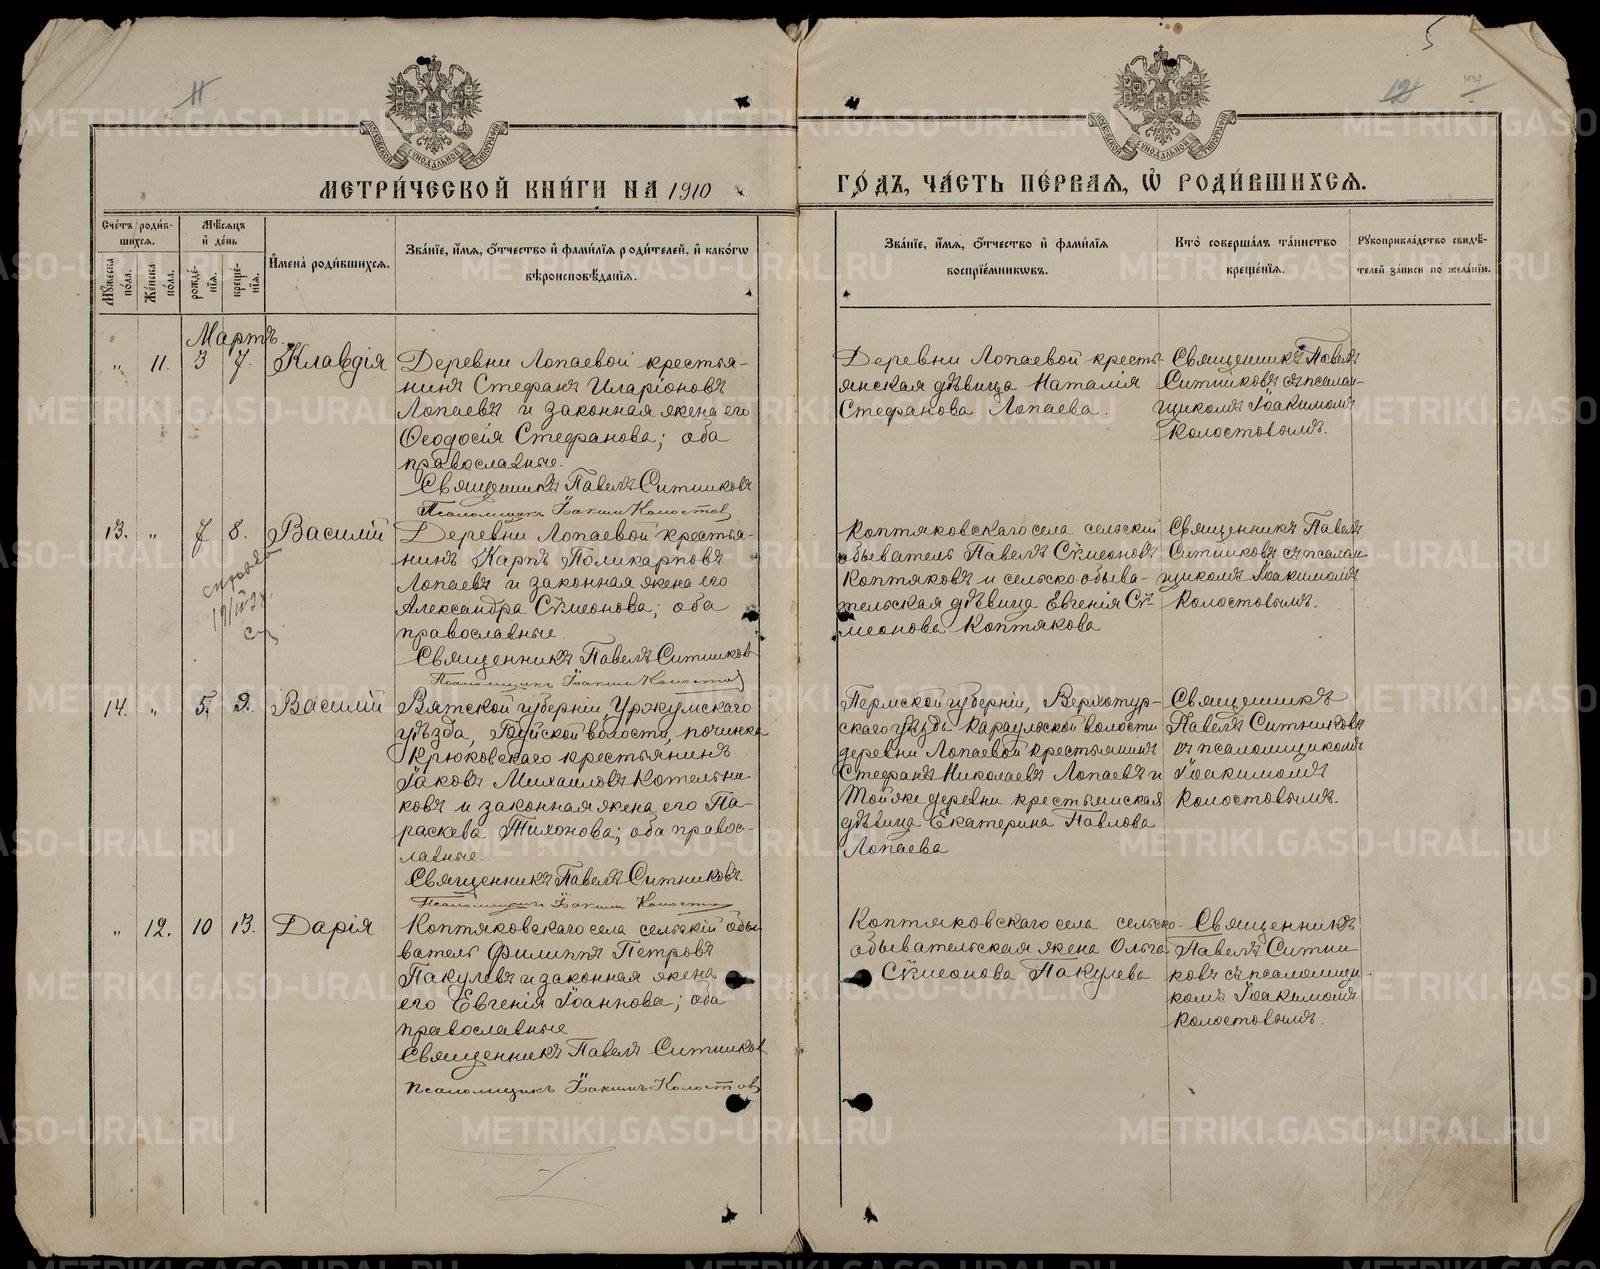 11
5
12
МОСКОВСКОЙ СѴНОДАЛЬНОЙ ТИПОГРАФІИ
МОСКОВСКОЙ СѴНОДАЛЬНОЙ ТИПОГРАФІИ
МЕТРИ́ЧЕСКОЙ КНИ́ГИ НА 1910
ГО́ДЪ, ЧА́СТЬ ПЕ́РВАЯ, Ѽ РОДИ́ВШИХСЯ.
Сче́тъ роди́в-
шихся.
Мѣ́сяцъ
и҆ де́нь
Мꙋ́жеска
по́ла.
Же́нска
по́ла.
рожде́-
нїя.
креще́-
нїя.
И҆мена̀ роди́вшихся.
Зва́нїе, и҆́мя, ѻ҆́тчество и҆ фами́лїя роди́телей, и҆ како́гѡ
вѣроисповѣ́данїя.
Зва́нїе, и҆́мя, ѻ҆́тчество и҆ фами́лїя
воспрїе́мникѡвъ.
Кто̀ соверша́лъ та́инство
креще́нїя.
Рꙋкоприкла́дство свидѣ́-
телей за́писи по жела́нїю.
Мартъ.
„ 11. 3 7. Клавдія
Деревни Лопаевой крестья-
нинъ Стефанъ Иларіоновъ
Лопаевъ и законная жена его
Ѳеодосія Стефанова; оба
православные.
Священникъ Павелъ Ситниковъ
Псаломщикъ Іоакимъ Колостовъ
Деревни Лопаевой кресть-
янская дѣвица Наталія
Стефанова Лопаева.
Священникъ Павелъ
Ситниковъ съ псалом-
щикомъ Іоакимомъ
Колостовымъ.
13. „ 7 8. Василій
Деревни Лопаевой крестья-
нинъ Карпъ Поликарповъ
Лопаевъ и законная жена его
Александра Сѵмеонова; оба
православные.
Священникъ Павелъ Ситниковъ
Псаломщикъ Іоакимъ Колостовъ
Коптяковскаго села сельскій
обыватель Павелъ Сѵмеоновъ
Коптяковъ и сельско обыва-
тельская дѣвица Евгенія Сѵ-
меонова Коптякова
Священникъ Павелъ
Ситниковъ съ псалом-
щикомъ Іоакимомъ
Колостовымъ.
14. „ 5. 9. Василій
Вятской губерніи Уржумскаго
уѣзда, волости, починка
Крюковскаго крестьянинъ
Іаковъ Михаиловъ Котельни-
ковъ и законная жена его Па-
раскева Тихонова; оба правос-
лавные.
Священникъ Павелъ Ситниковъ.
Псаломщикъ Іоакимъ Колостовъ
Пермской губерніи, Верхотур-
скаго уѣзда Караульской волости
деревни Лопаевой крестьянинъ
Стефанъ Николаевъ Лопаевъ и
Той же деревни крестьянская
дѣвица Екатерина Павлова
Лопаева
Священникъ
Павелъ Ситниковъ
съ псаломщикомъ
Іоакимомъ
Колостовымъ.
„ 12. 10 13. Дарія
Коптяковскаго села сельскій обы-
ватель Филиппъ Петровъ
Пакулевъ и законная жена
его Евгенія Іоаннова; оба
православные
Священникъ Павелъ Ситниковъ
Псаломщикъ Іоакимъ Колостовъ
Коптяковскаго села сельско-
обывательская жена Ольга
Сѵмеонова Пакулева
Священникъ
Павелъ Ситни-
ковъ съ псаломщи-
комъ Іоакимомъ
Колостовымъ.
METRIKI.GASO-URAL.RU